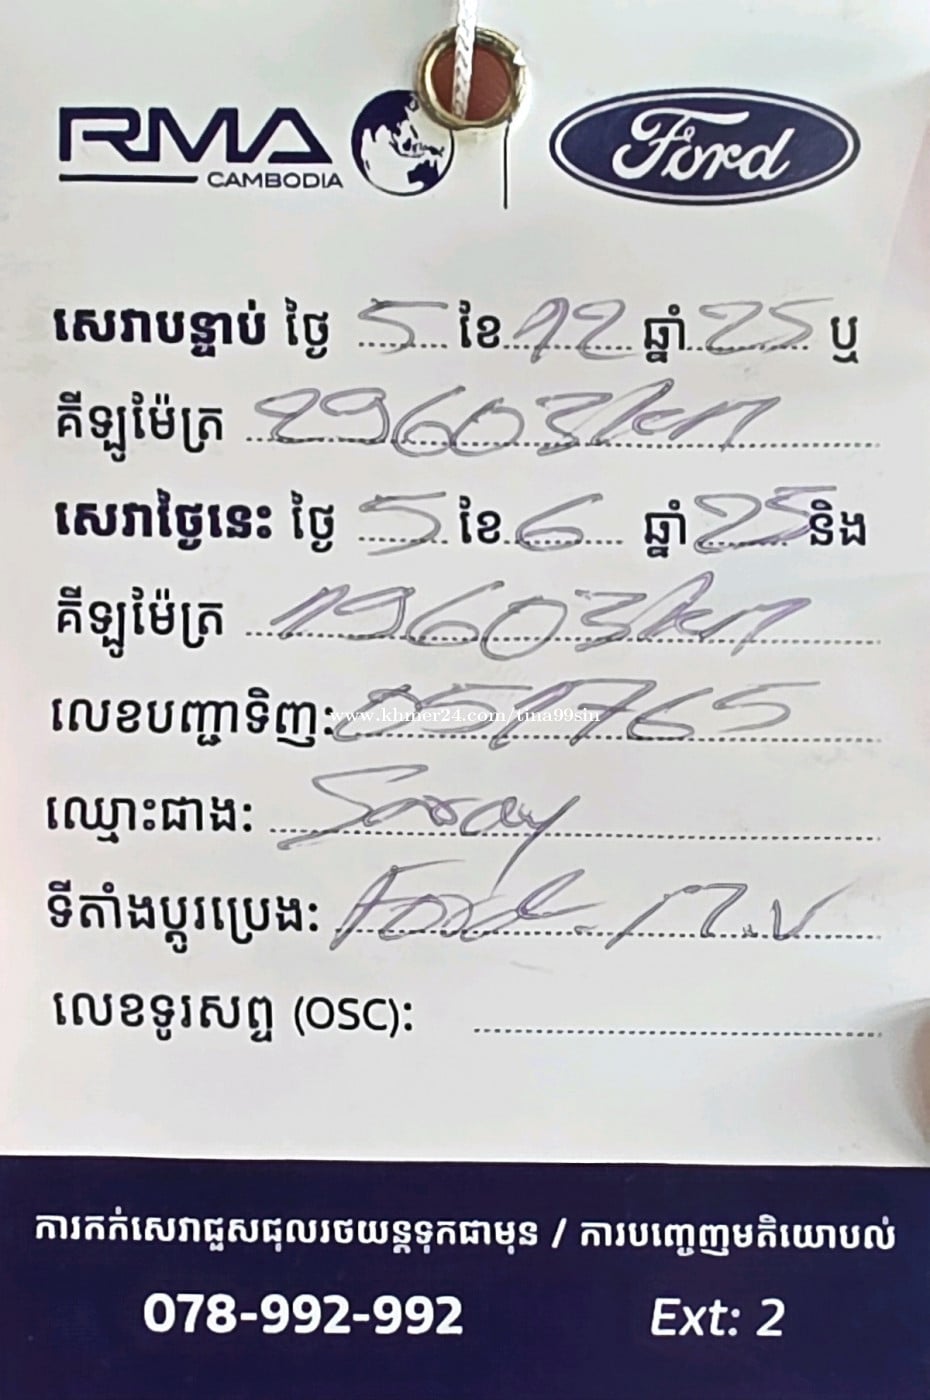 RMA
CAMBODIA
Ford
សេវាបន្ទាប់ ថ្ងៃ 5 ខែ 12 ឆ្នាំ 25 ឬ
គីឡូម៉ែត្រ 29603km
សេវាថ្ងៃនេះ ថ្ងៃ 5 ខែ 6 ឆ្នាំ 25 និង
គីឡូម៉ែត្រ 19603km
លេខបញ្ជាទិញ: 051765
www.khmer24.com/tina99sin
ឈ្មោះជាង: Saray
ទីតាំងប្តូរប្រេង: Ford
លេខទូរសព្ទ (OSC):
ការកក់សេវាជួសជុលរថយន្តទុកជាមុន / ការបញ្ចេញមតិយោបល់
078-992-992 Ext: 2